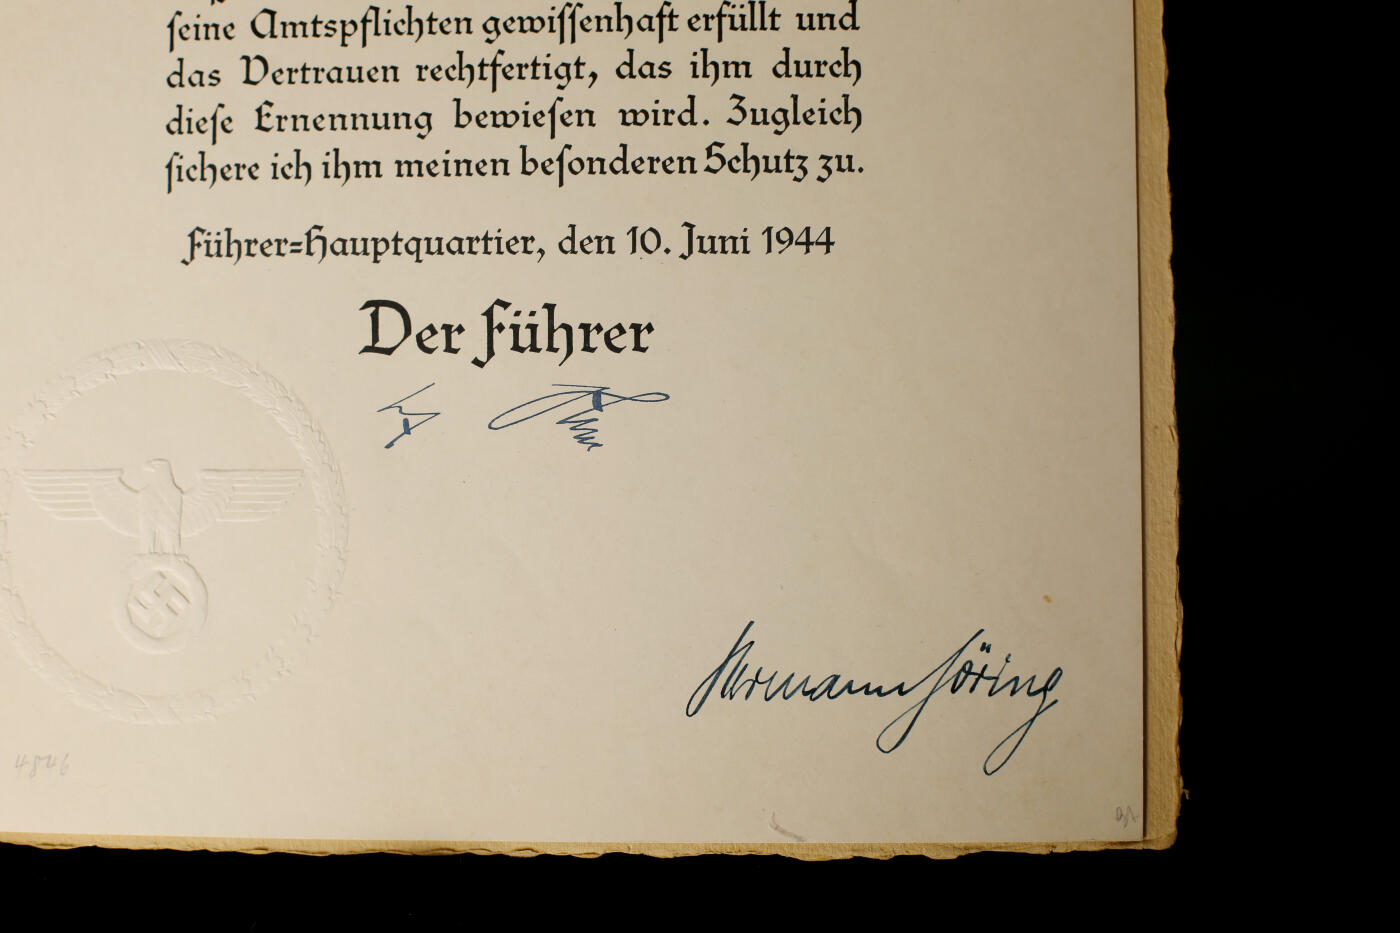 seine Amtspflichten gewissenhaft erfüllt und
das Vertrauen rechtfertigt, das ihm durch
diese Ernennung bewiesen wird. Zugleich
sichere ich ihm meinen besonderen Schutz zu.
Führer=Hauptquartier, den 10. Juni 1944
Der Führer
Hermann Göring
4846